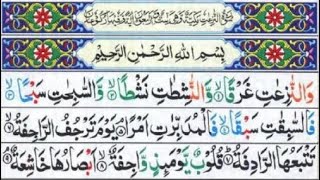 سُوْرَةُ النّٰزِعٰتِ مَكِّيَّةٌ وَّهِىَ سِتٌّ وَّاَرْبَعُوْنَ اٰيَةً وَّفِيْهَا رُكُوْعَانِ
بِسْمِ اللّٰهِ الرَّحْمٰنِ الرَّحِيْمِ
وَالنّٰزِعٰتِ غَرْقًا ۙ۱ وَّالنّٰشِطٰتِ نَشْطًا ۙ۲ وَّالسّٰبِحٰتِ سَبْحًا ۙ۳
فَالسّٰبِقٰتِ سَبْقًا ۙ۴ فَالْمُدَبِّرٰتِ اَمْرًا ۘ۵ يَوْمَ تَرْجُفُ الرَّاجِفَةُ ۙ۶
تَتْبَعُهَا الرَّادِفَةُ ؕ۷ قُلُوْبٌ يَّوْمَئِذٍ وَّاجِفَةٌ ۙ۸ اَبْصَارُهَا خَاشِعَةٌ ۘ۹